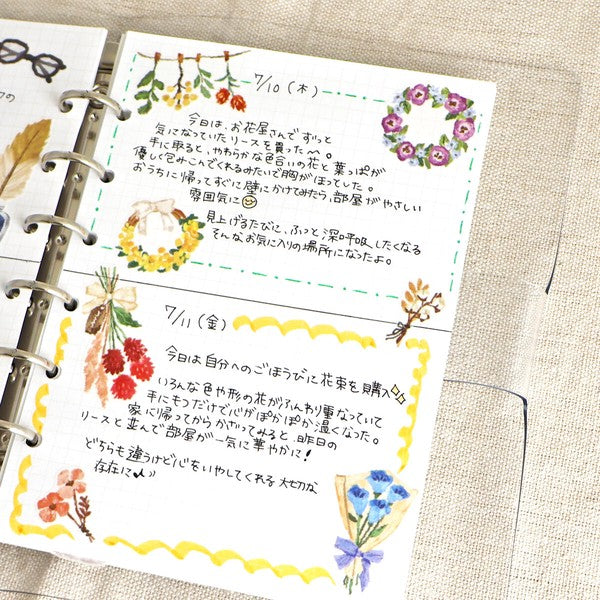 クの
7/10(木)
今日は、お花屋さんでずっと
気になっていたリースを買ったへ。
手に取ると、やわらかな色合いの花と葉っぱが
優しく包みこんでくれるみたいで胸がほっとした。
おうちに帰ってすぐに壁にかけてみたら、部屋がやさしい
雰囲気に
見上げるたびに、ふっと深呼吸したくなる
そんなお気に入りの場所になったよ。
7/11(金)
今日は自分へのごほうびに花束を購入
いろんな色や形の花がふんわり重なっていて
手にもつだけで心がぽかぽか温くなった。
家に帰ってからかざってみると、昨日の
リースと並んで部屋が一気に華やかに!
どちらも違うけど心をいやしてくれる大切な
存在に♪